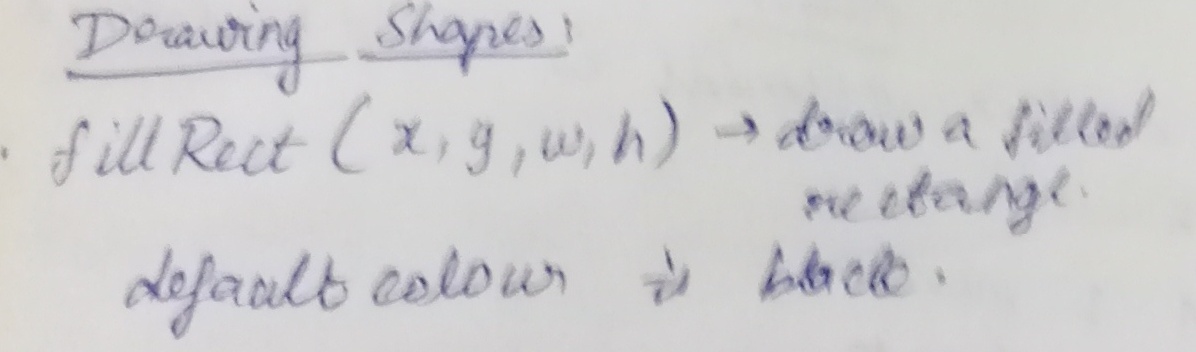 Drawing Shapes:
. fillRect (x, y, w, h) → draw a filled
rectange.
default colour is black.